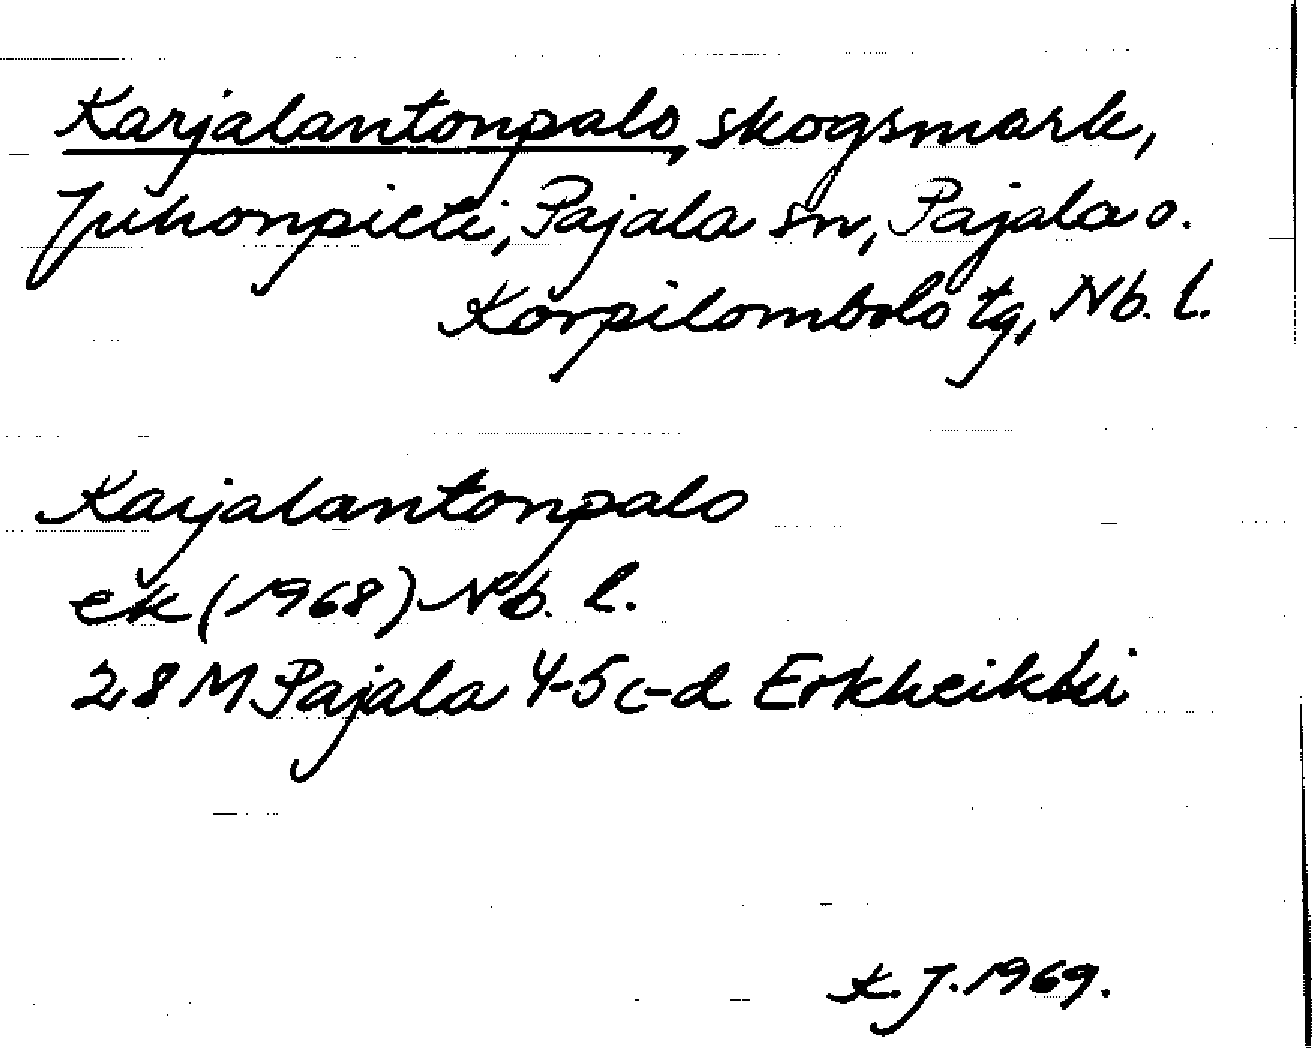 Karjalantonpalo, skogsmark,
Juhonpieti, Pajala sn, Pajala o.
Korpilombolo tg, Nb. l.
Karjalantonpalo
ek (1968) Nb. l.
28 M Pajala 4-5 c-d Erkheikki
K. J. 1969.